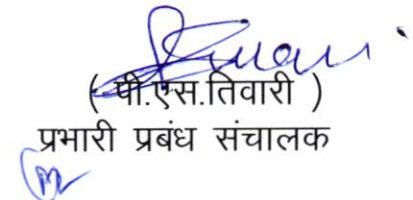 ( पी.एस.तिवारी )
प्रभारी प्रबंध संचालक